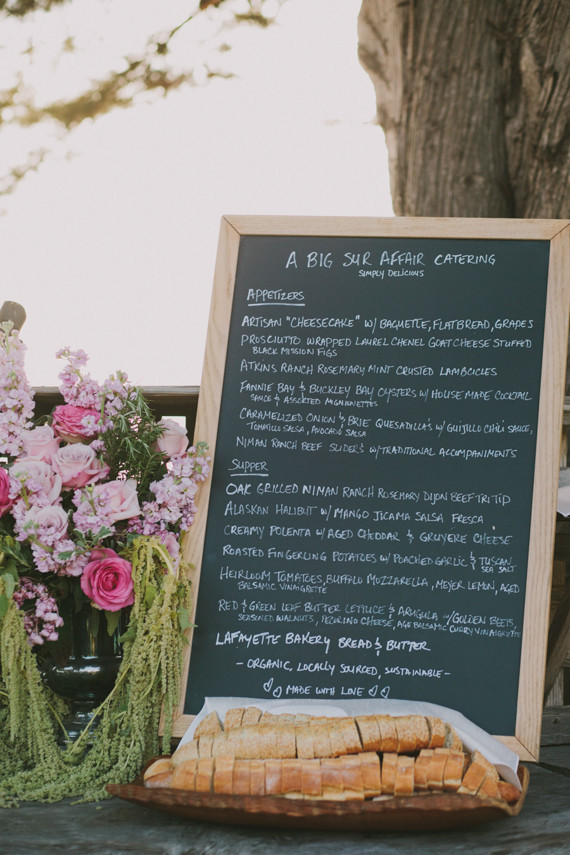 A BIG SUR AFFAIR CATERING
SIMPLY DELICIOUS
APPETIZERS
ARTISAN "CHEESECAKE" W/ BAGUETTE, FLATBREAD, GRAPES
PROSCIUTTO WRAPPED LAUREL CHENEL GOAT CHEESE STUFFED
BLACK MISSION FIGS
ATKINS RANCH ROSEMARY MINT CRUSTED LAMBCICLES
FANNIE BAY & BUCKLEY BAY OYSTERS W/ HOUSE MADE COCKTAIL
SAUCE & ASSORTED MIGNONETTES
CARAMELIZED ONION & BRIE QUESADILLA'S W/ GUIJILLO CHILI SAUCE,
TOMATILLO SALSA, AVOCADO SALSA
NIMAN RANCH BEEF SLIDER'S W/ TRADITIONAL ACCOMPANIMENTS
SUPPER
OAK GRILLED NIMAN RANCH ROSEMARY DIJON BEEF TRI TIP
ALASKAN HALIBUT W/ MANGO JICAMA SALSA FRESCA
CREAMY POLENTA W/ AGED CHEDDAR & GRUYERE CHEESE
ROASTED FINGERLING POTATOES W/ POACHED GARLIC & TUSCAN
SEA SALT
HEIRLOOM TOMATOES, BUFFALO MOZZARELLA, MEYER LEMON, AGED
BALSAMIC VINAIGRETTE
RED & GREEN LEAF BUTTER LETTUCE & ARUGULA W/ GOLDEN BEETS,
SEASONED WALNUTS, PECORINO CHEESE, AGE BALSAMIC CURRY VINAIGRETTE
LAFAYETTE BAKERY BREAD & BUTTER
- ORGANIC, LOCALLY SOURCED, SUSTAINABLE -
♡♡ MADE WITH LOVE ♡♡